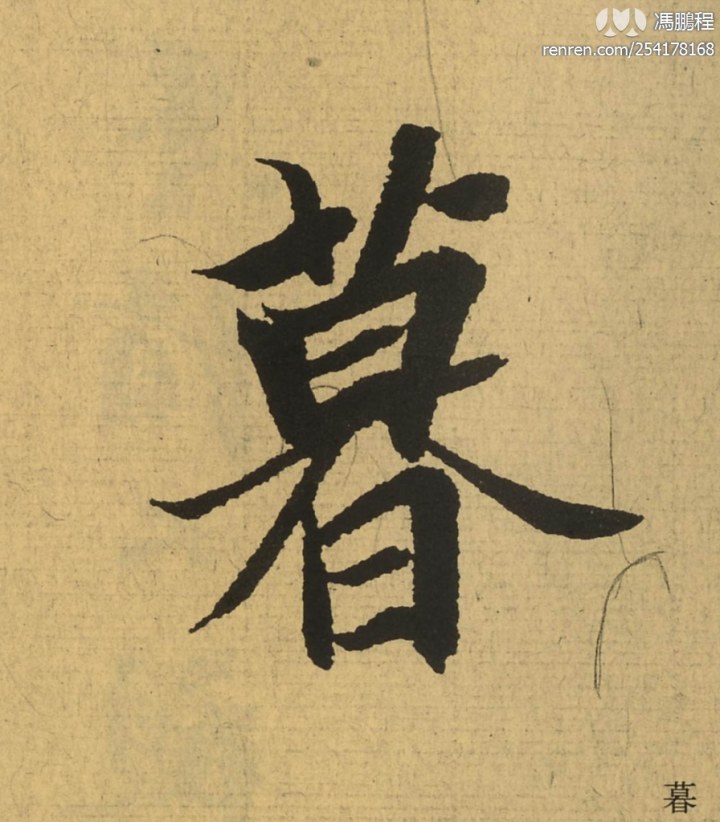 馮鵬程
renren.com/254178168
暮
暮